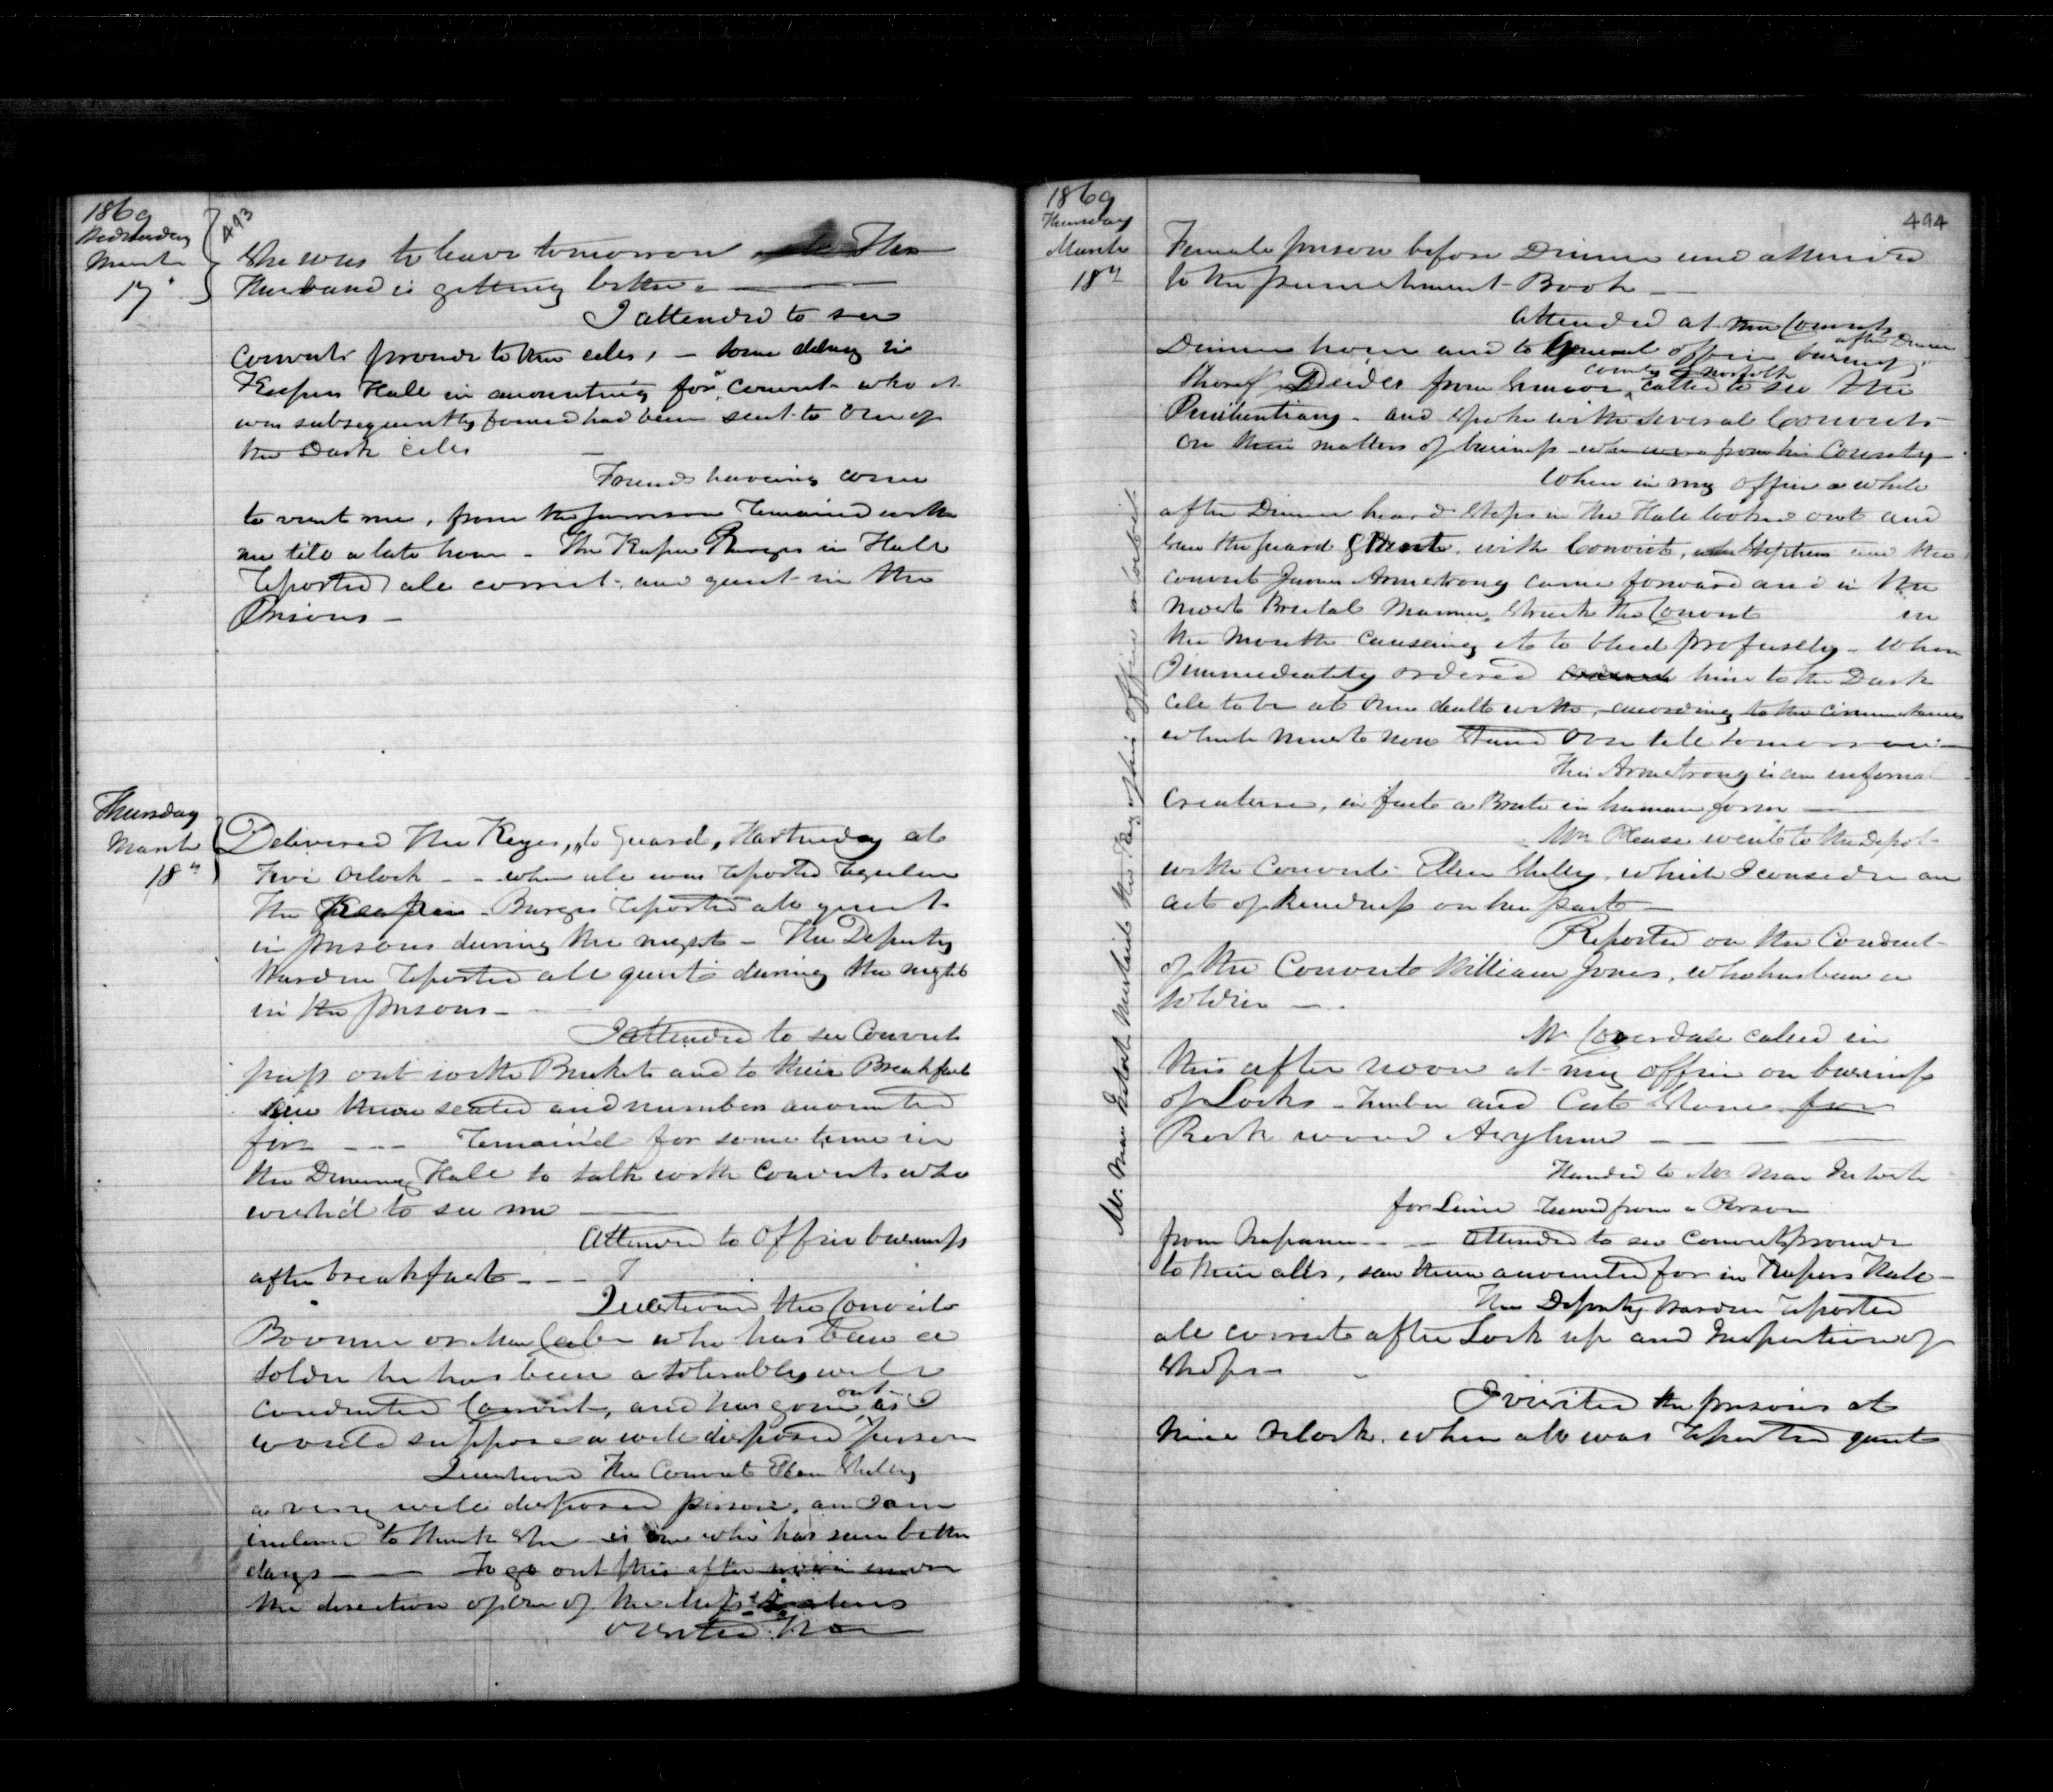 1869
Wednesday
March
17
493
She was to leave tomorrow The
Husband is getting better.
I attended to see
Convicts proceed to their cells, — some delay in
Keepers Hall in accounting for a convict who it
was subsequently found had been sent to One of
the Dark Cells
Friends having come
to visit me, from the remained with
me till a late hour — The Keeper Burges in Hall
reported all correct, and quiet in the
Prisons —
Thursday
March
18"
Delivered the Keys, to Guard, Hartnedy at
Five Oclock — when all was reported regular
The Keeper Burges reported all quiet
in prisons during the night — The Deputy
Warden reported all quiet during the night
in the prisons —
I attended to see Convicts
pass out with Buckets and to their Breakfast
saw them seated and numbers accounted
for — remain'd for some time in
the Dining Hall to talk with convicts who
wish'd to see me
Attended to Office business
after breakfast —
Questioned the Convict
who has been a
Soldier he has been a tolerably well
conducted Convict, and has gone out as I
would suppose a well disposed person
Questioned the Convict Ellen Shelley
a very well disposed person, and am
inclined to think she is one who has seen better
days — to go out this after noon under
the direction of one of the
visited the
1869
Thursday
March
18"
494
Female prison before Dinner and attended
to the punishment Book —
Attended at the Convicts
Dinner hour and to General office business after Dinner
Sheriff Deedes from Simcoe, County of Norfolk called to see the
Penitentiary — and spoke with several Convicts
on their matters of business — who were from his County —
When in my office a while
after Dinner heard steps in the Hall looked out and
saw the guard with Convict, Stephens and the
convict James Armstrong came forward and in the
most Brutal manner, struck the Convict in
the mouth causeing it to bleed profusely — When
I immediately ordered him to the Dark
Cell to be at once dealt with, according to the circumstances
which must now stand over till tomorrow —
This Armstrong is an infernal
Creature, in fact a Brute in human form —
Mrs Please went to the Depot
with Convict Ellen Shelley, which I consider an
act of kindness on her part —
Reported on the Conduct
of the Convict William Jones, who has been a
soldier —
Mr Coverdale called in
this after noon at my office on business
of Locks — Timber and Cut Stone for
Rock wood Asylum —
Handed to Mr Mac Intosh
for Lime received from a Person
from Napanee — attended to see Convicts proceed
to their cells, saw them accounted for in Keepers Hall —
The Deputy Warden reported
all correct after Lock up and Inspection of
Shops —
I visited the prisons at
Nine Oclock, when all was reported quiet